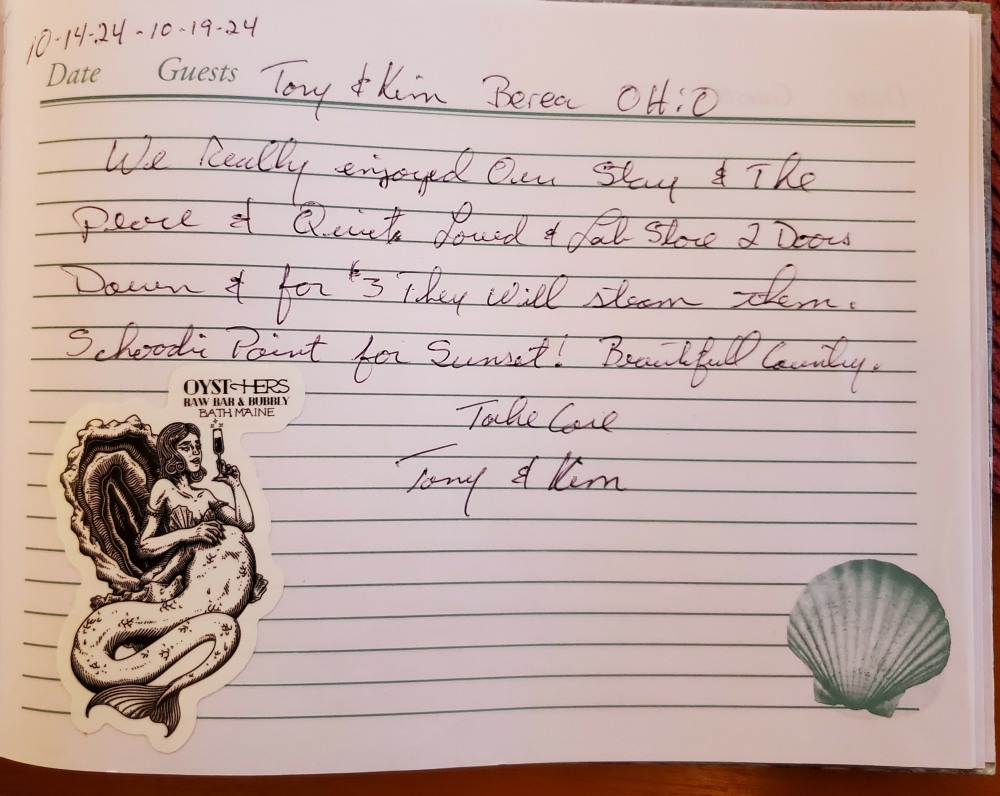 10-14-24 - 10-19-24
Date Guests Tony & Kim Berea OHiO
We Really enjoyed Our Stay & The
Peace & Quiet. Loved & Lob Store 2 Doors
Down & for $3 They Will steam them.
Schoodic Point for Sunset! Beautifull Country.
Take Care
Tony & Kim
OYSTHERS
RAW BAR & BUBBLY
BATH MAINE